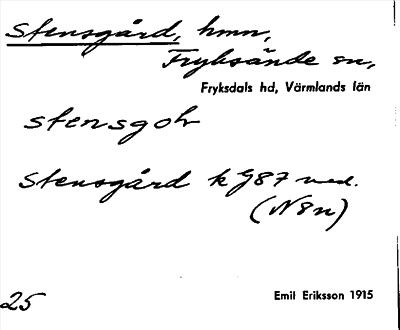 Stensgård, hmn,
Fryksände sn,
Fryksdals hd, Värmlands län
stensgoh
Stensgård k G87 med.
(N8n)
25
Emil Eriksson 1915